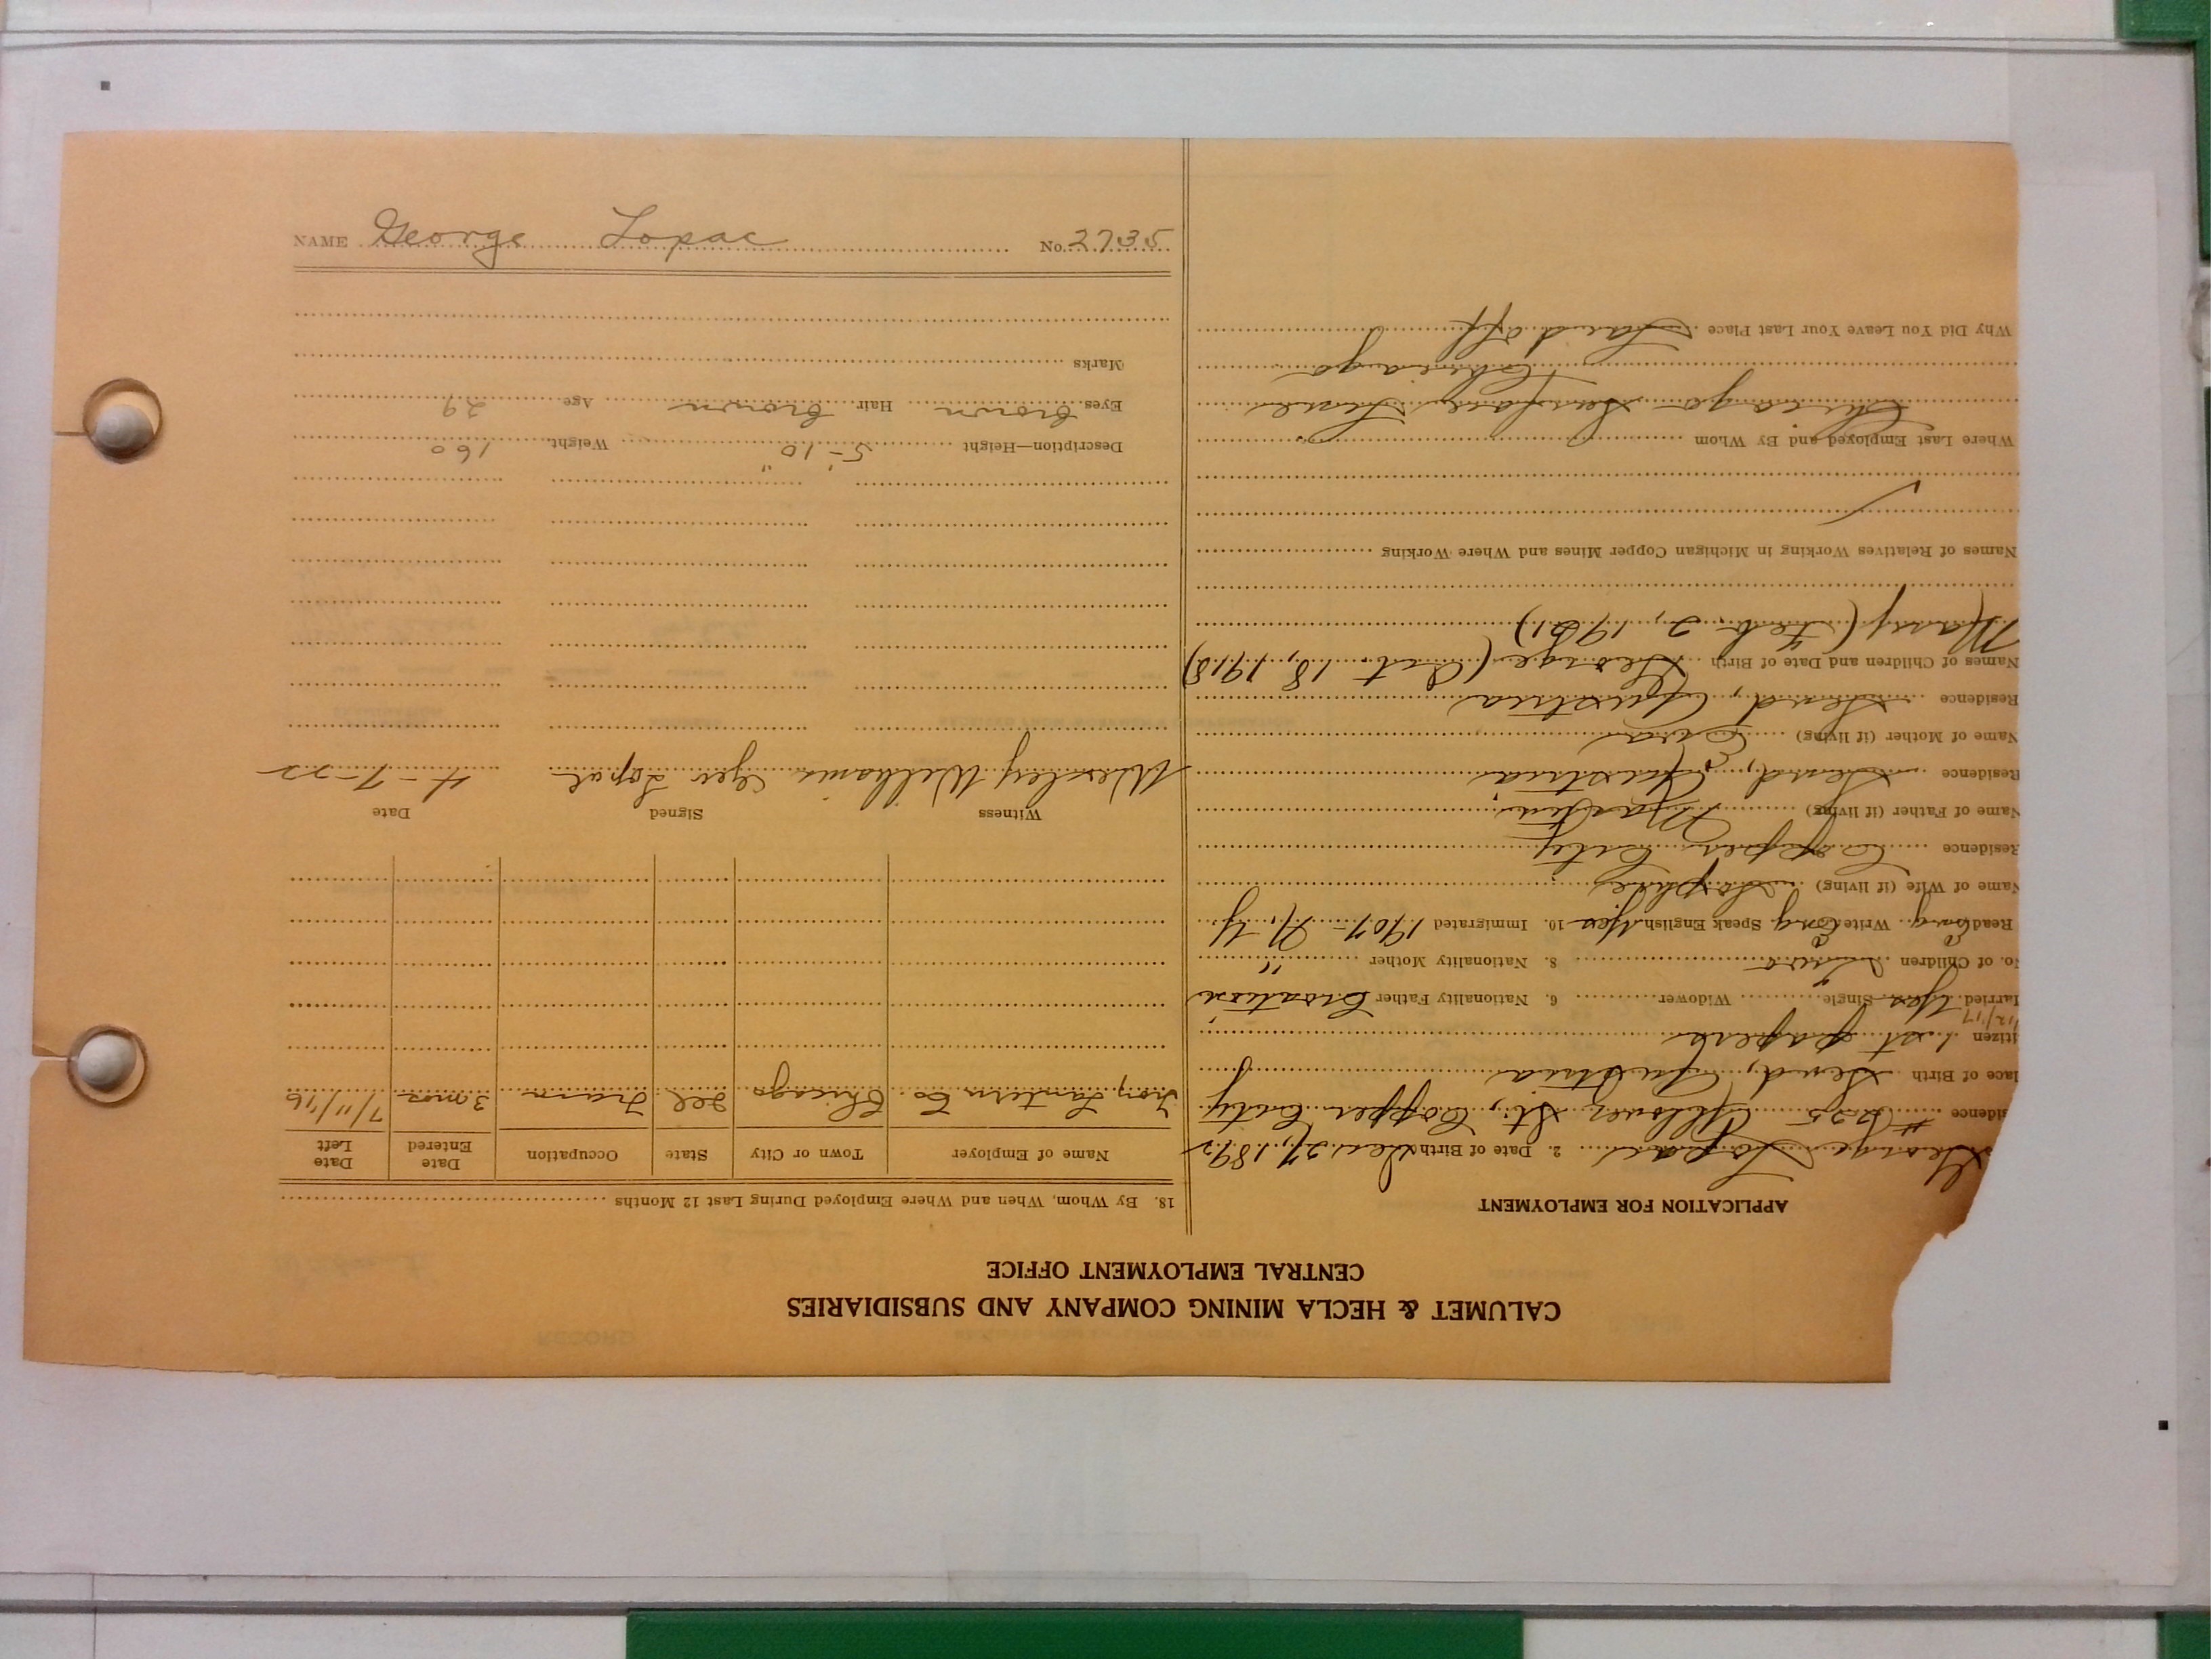 CALUMET & HECLA MINING COMPANY AND SUBSIDIARIES
CENTRAL EMPLOYMENT OFFICE
APPLICATION FOR EMPLOYMENT
George Lopac 2. Date of Birth Dec. 27, 1892
sidence #225 Allouez St., Copper City
lace of Birth Send, Austria
itizen 1st papers
12/17
Married Yes Single Widower 6. Nationality Father Croation
No. of Children Two 8. Nationality Mother "
Read Eng. Write Eng Speak English Yes 10. Immigrated 1907 - N.Y
Name of Wife (if living) Sophie
Residence Copper City
Name of Father (if living) Martin
Residence Send, Austria
Name of Mother (if living) Eva
Residence Send, Austria
Names of Children and Date of Birth George (Oct. 18, 1918)
Mary (Feb. 2, 1921)
Names of Relatives Working in Michigan Copper Mines and Where Working
Where Last Employed and By Whom
Chicago Surface Lines
Chicago
Why Did You Leave Your Last Place Laid off
18. By Whom, When and Where Employed During Last 12 Months
Name of Employer Town or City State Occupation Date Entered Date Left
Lantern Co. Chicago Ill. 3 mos 7/11/16
Witness Signed Date
Wesley Williams Geo Lopac 4-7-22
Description—Height 5'-10" Weight 160
Eyes Brown Hair Brown Age 29
Marks
NAME George Lopac No. 2735